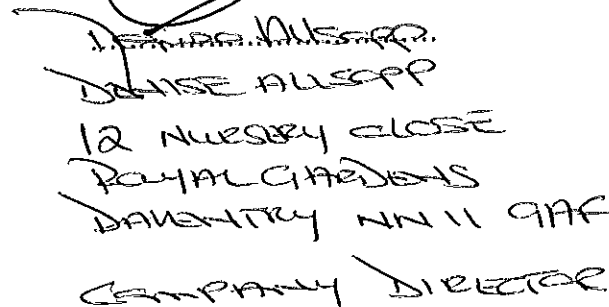 Denise Allsopp
DENISE ALLSOPP
12 NURSERY CLOSE
ROYAL GARDENS
DAVENTRY NN11 9AF
COMPANY DIRECTOR